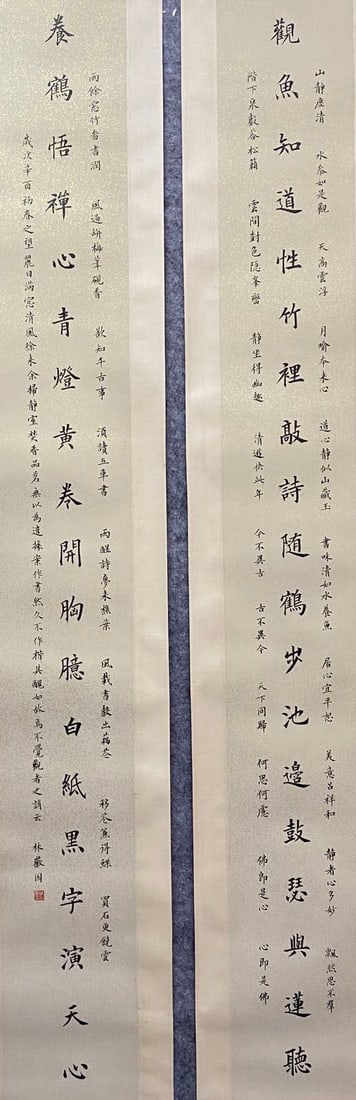 山靜塵清 水參如是觀 天高雲浮 月喻本來心 道心靜似山藏玉 書味清如水養魚 居心宜平恕 美意召祥和 靜者心多妙 飄然思不羣
觀魚知道性竹裡敲詩隨鶴步池邊鼓瑟與蓮聽
階下泉聲答松籟 雲間封色隱峯巒 靜坐得幽趣 清遊快此年 今不異古 古不異今 天下同歸 何思何慮 佛即是心 心即是佛
雨餘窓竹啚書潤 風過妍梅筆硯香 欲知千古事 須讀五車書 雨醒詩夢來蕉葉 風載書聲出藕花 移花兼得蝶 買石更饒雲
養鶴悟禪心青燈黃卷開胸臆白紙黑字演天心
歲次辛酉初春之望麗日滿窓清風徐來余掃靜室焚香品茗無以為遣據案作書然久不作楷其醜如故焉不覺觀者之誚云 林嚴